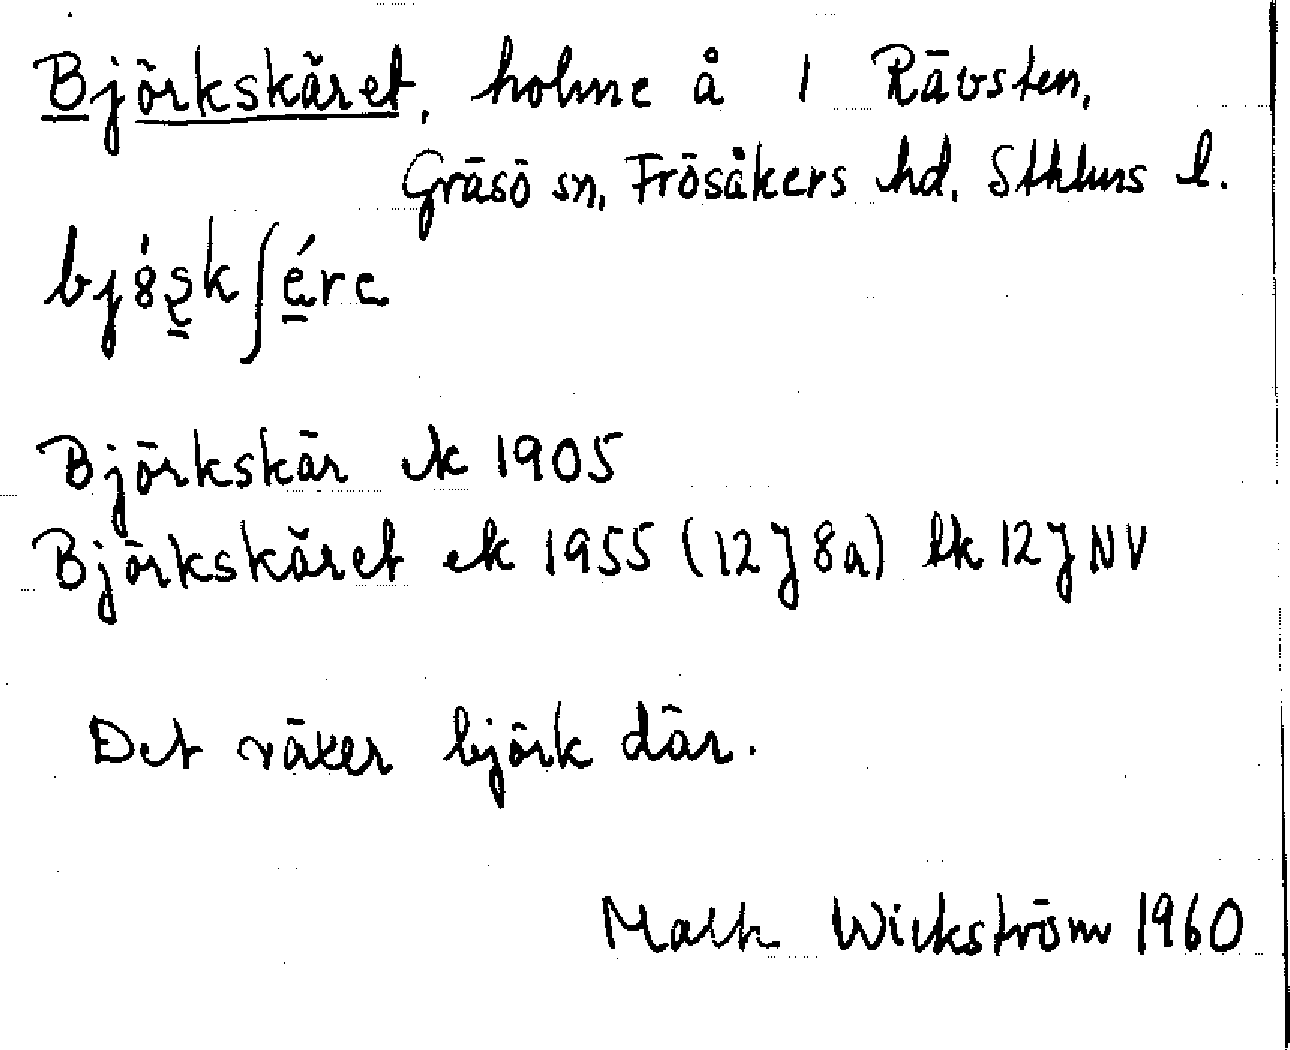 Björkskäret, holme å 1 Rävsten,
Gräsö sn, Frösåkers hd, Sthlms l.
Björkskär ek 1905
Björkskäret ek 1955 (12J8a) lk 12J NV
Det växer björk där.
Wickström 1960